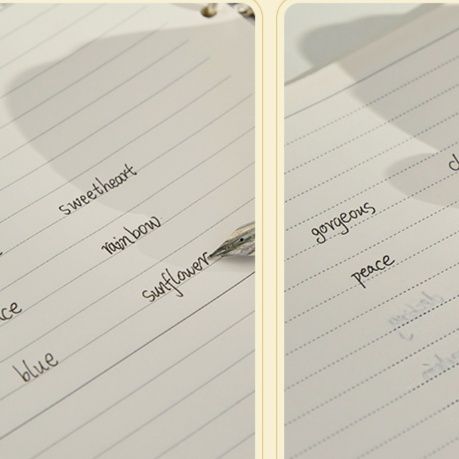 sweetheart
rainbow
sunflower
blue
gorgeous
peace